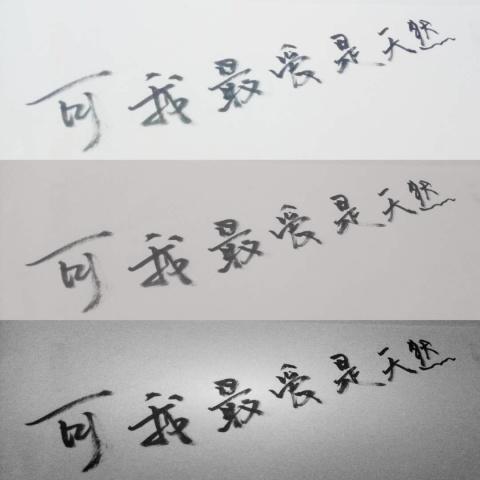 可我最爱是天然
可我最爱是天然
可我最爱是天然